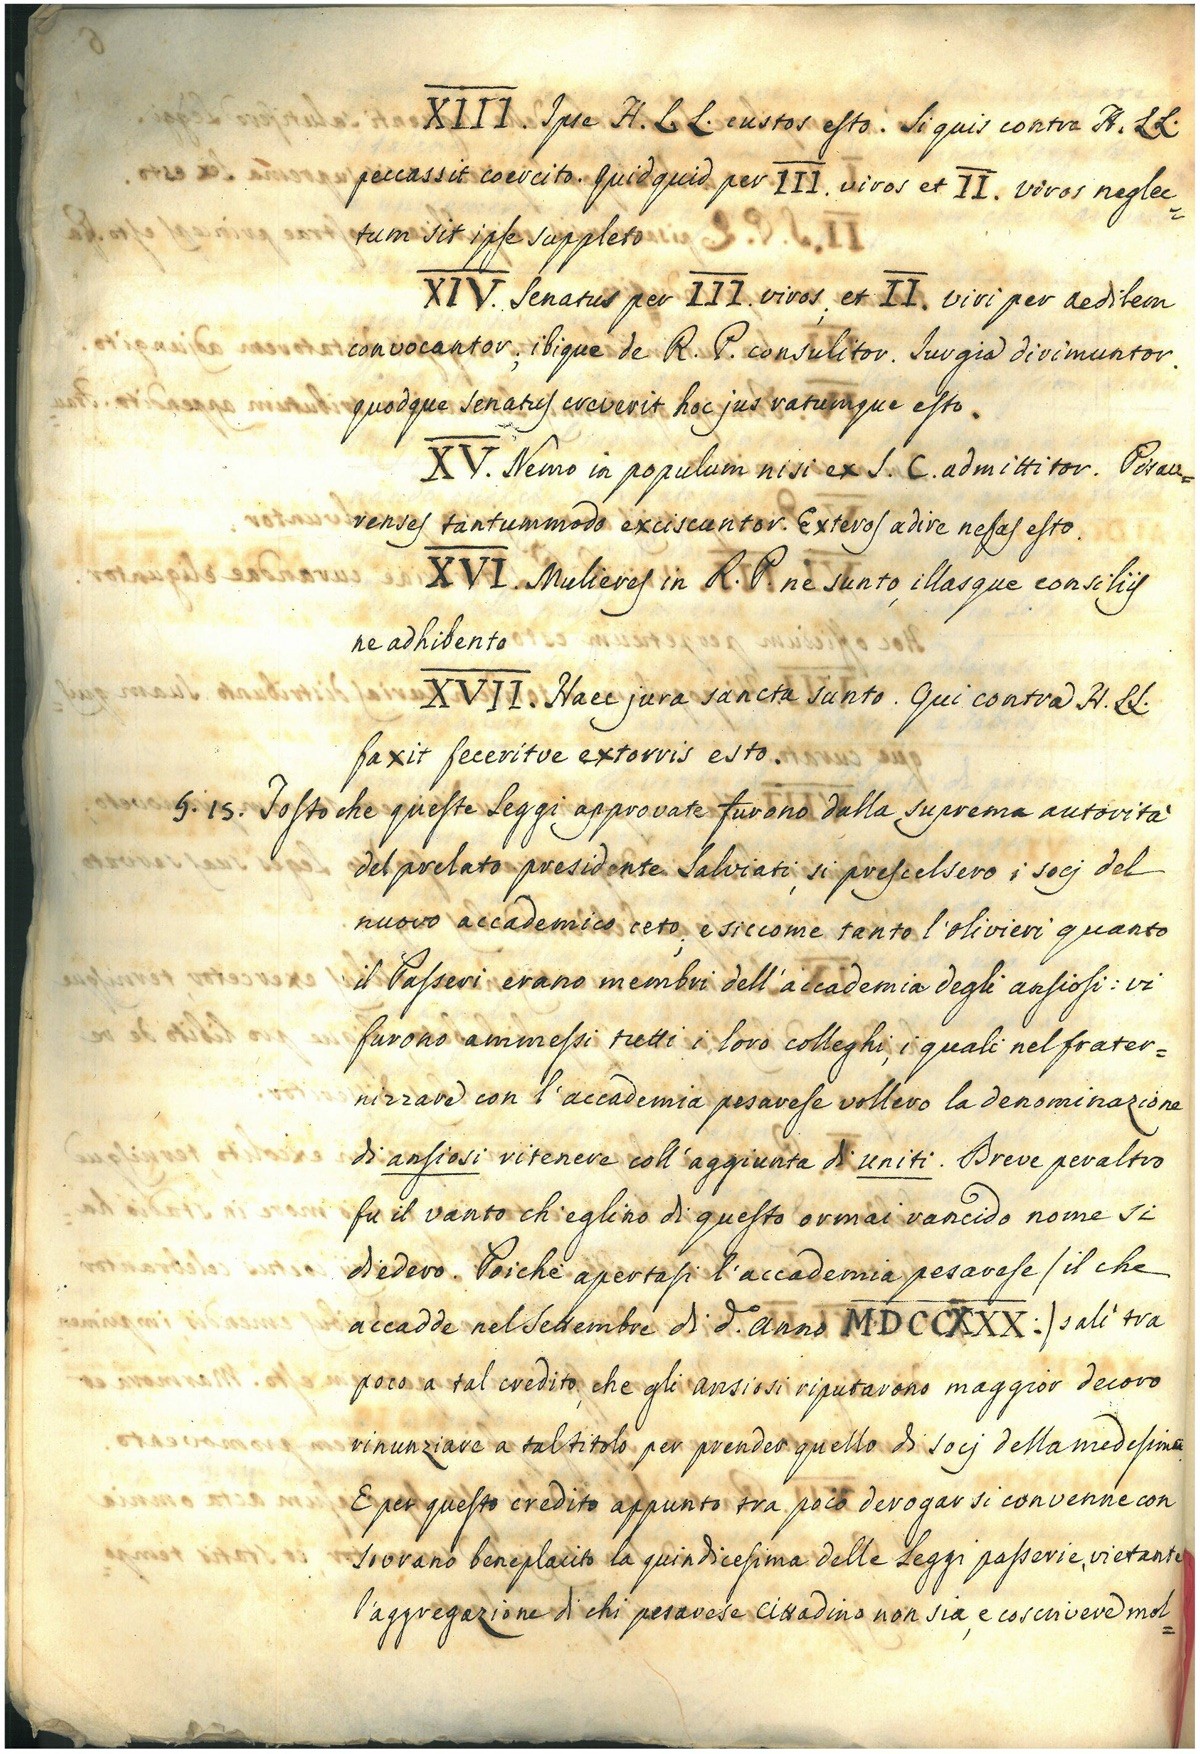 XIII. Ipse H. LL. custos esto. Si quis contra H. LL.
peccassit coercito. Quidquid per III. viros et II. viros neglec=
tum sit ipse suppleto
XIV. Senatus per III. viros, et II. viri per aedilem
convocantor, ibique de R. P. consulitor. Jurgia dirimuntor.
quodque senatus creverit hoc jus ratumque esto.
XV. Nemo in populum nisi ex S. C. admittitor. Pisau=
renses tantummodo exciscuntor. Exteros adire nefas esto.
XVI. Mulieres in R. P. ne sunto, illasque consiliis
ne adhibento
XVII. Haec jura sancta sunto. Qui contra H. LL.
faxit feceritve extorris esto.
§. 15. Tosto che queste Leggi approvate furono dalla suprema autorità
del prelato presidente Salviati, si prescelsero i socj del
nuovo accademico ceto, e siccome tanto l'olivieri quanto
il Passeri erano membri dell'accademia degli ansiosi: vi
furono ammessi tutti i loro colleghi, i quali nel frater=
nizzare con l'accademia pesarese vollero la denominazione
di ansiosi ritenere coll'aggiunta di uniti. Breve peraltro
fu il vanto ch'eglino di questo ormai rancido nome si
diedero. Poichè apertasi l'accademia pesarese /il che
accadde nel Settembre di d.º anno MDCCXXX:/ salì tra
poco a tal credito, che gli ansiosi riputarono maggior decoro
rinunziare a tal titolo per prender quello di socj della medesima
E per questo credito appunto tra poco derogar si convenne con
sovrano beneplacito la quindicesima delle Leggi passerie, vietante
l'aggregazione di chi pesarese Cittadino non sia, e coscrivere mol=